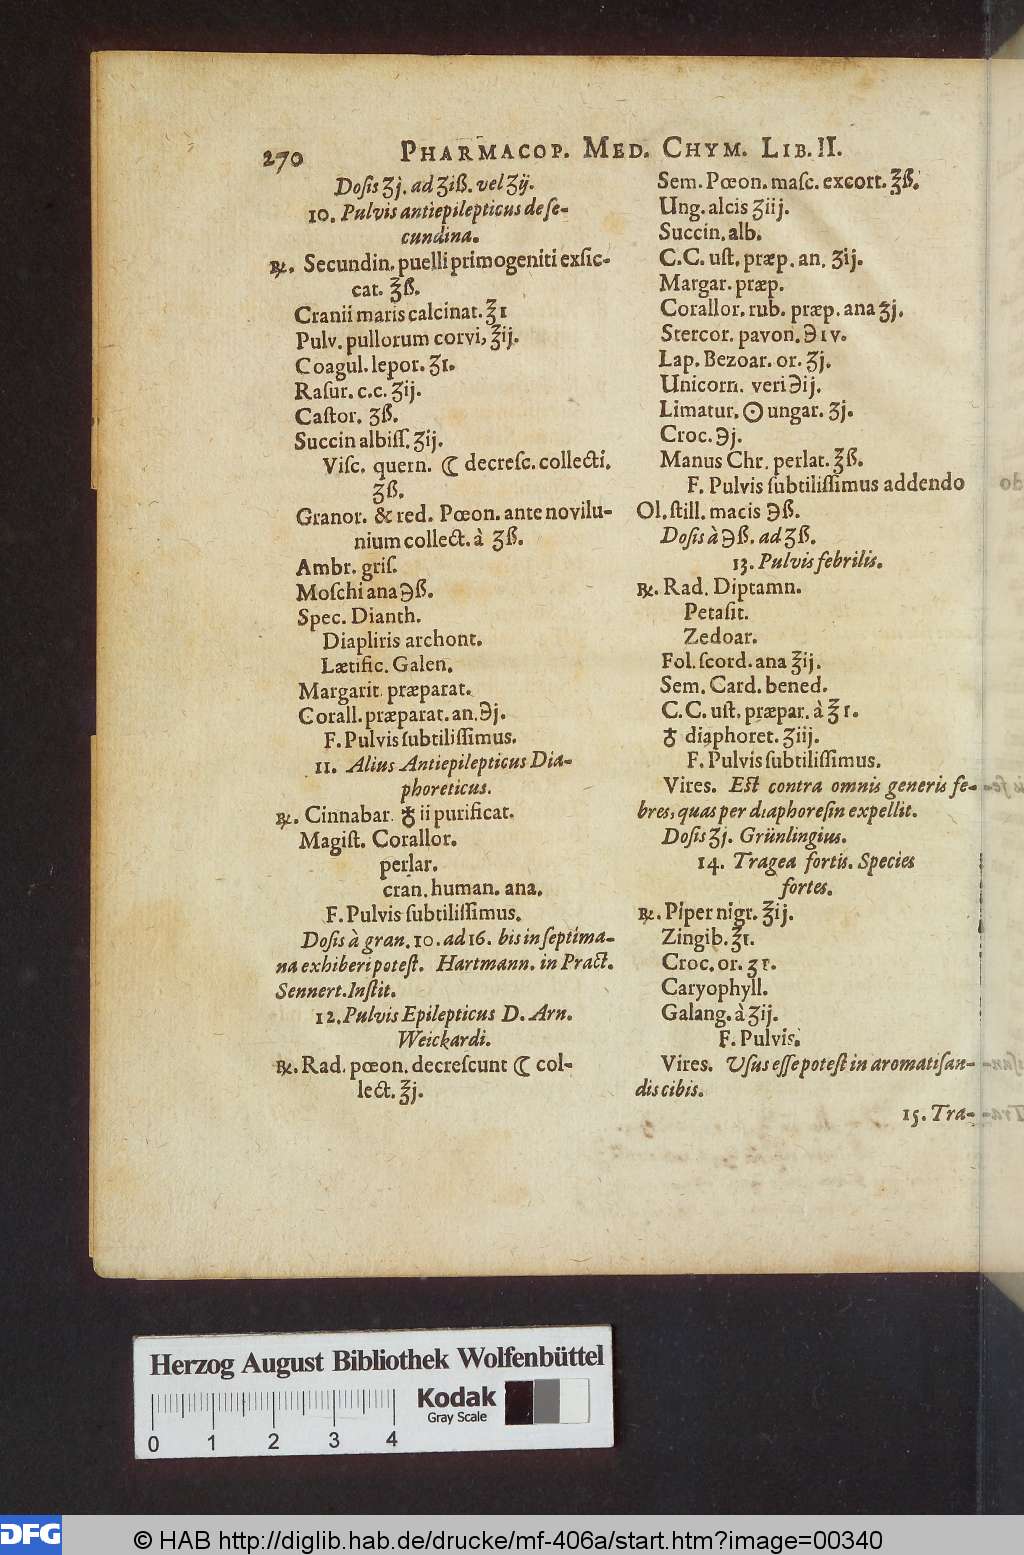 270 PHARMACOP. MED. CHYM. LIB. II.
Dosis ʒj. ad ʒiß. vel ʒij.
10. Pulvis antiepilepticus de se-
cundina.
℞. Secundin. puelli primogeniti exsic-
cat. ℥ß.
Cranii maris calcinat. ℥ı
Pulv. pullorum corvi, ℥ij.
Coagul. lepor. ʒı.
Rasur. c.c. ʒij.
Castor. ʒß.
Succin albiss. ʒij.
Visc. quern. ☾ decresc. collecti.
ʒß.
Granor. & red. Pœon. ante novilu-
nium collect. à ʒß.
Ambr. gris.
Moschi ana ℈ß.
Spec. Dianth.
Diapliris archont.
Lætific. Galen.
Margarit. præparat.
Corall. præparat. an. ℈j.
F. Pulvis subtilissimus.
11. Alius Antiepilepticus Dia-
phoreticus.
℞. Cinnabar. ♁ ii purificat.
Magist. Corallor.
perlar.
cran. human. ana.
F. Pulvis subtilissimus.
Dosis à gran. 10. ad 16. bis in septima-
na exhiberi potest. Hartmann. in Pract.
Sennert. Instit.
12. Pulvis Epilepticus D. Arn.
Weickardi.
℞. Rad. pœon. decrescunt ☾ col-
lect. ℥j.
Sem. Pœon. masc. excort. ℥ß.
Ung. alcis ʒiij.
Succin. alb.
C.C. ust. præp. an. ʒij.
Margar. præp.
Corallor. rub. præp. ana ʒj.
Stercor. pavon. ℈ıv.
Lap. Bezoar. or. ʒj.
Unicorn. veri ℈ij.
Limatur. ☉ ungar. ʒj.
Croc. ℈j.
Manus Chr. perlat. ℥ß.
F. Pulvis subtilissimus addendo
Ol. still. macis ℈ß.
Dosis à ℈ß. ad ʒß.
13. Pulvis febrilis.
℞. Rad. Diptamn.
Petasit.
Zedoar.
Fol. scord. ana ℥ij.
Sem. Card. bened.
C.C. ust. præpar. à ℥ı.
♁ diaphoret. ʒiij.
F. Pulvis subtilissimus.
Vires. Est contra omnis generis fe-
bres, quas per diaphoresin expellit.
Dosis ʒj. Grünlingius.
14. Tragea fortis. Species
fortes.
℞. Piper nigr. ℥ij.
Zingib. ℥ı.
Croc. or. ʒı.
Caryophyll.
Galang. à ʒij.
F. Pulvis.
Vires. Usus esse potest in aromatisan-
dis cibis.
15. Tra-
Herzog August Bibliothek Wolfenbüttel
Kodak
Gray Scale
0 1 2 3 4
DFG
© HAB http://diglib.hab.de/drucke/mf-406a/start.htm?image=00340